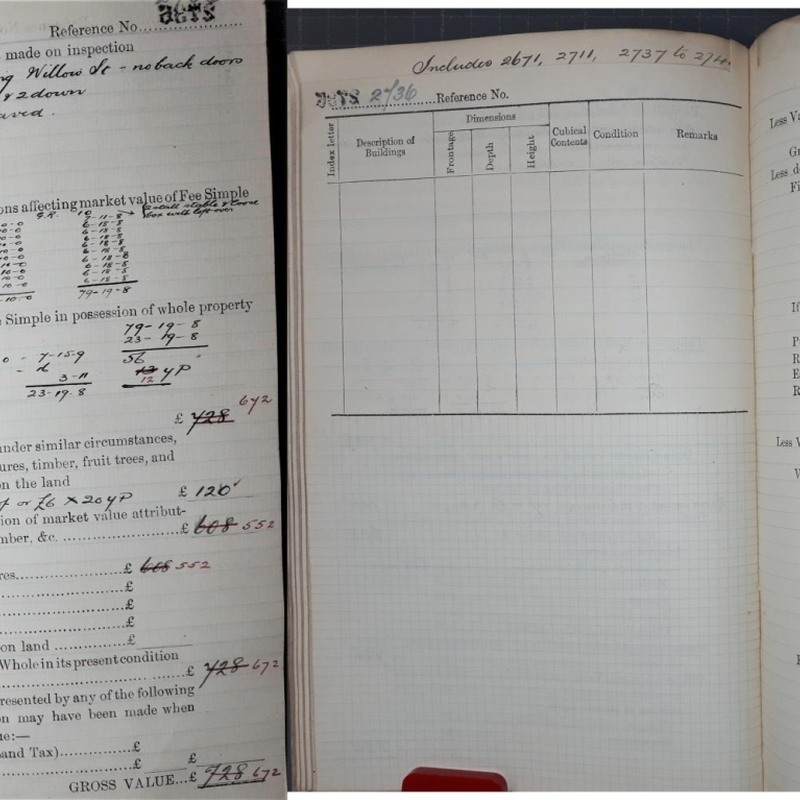 Reference No.
made on inspection
Willow St - no back doors
& 2 down
ons affecting market value of Fee Simple
G.R. 10
7-11-8
box with left over
6-18-8
6-18-8
6-18-8
6-18-8
6-18-8
6-18-8
6-18-8
6-18-8
6-18-8
-10-0 79-19-8
Simple in possession of whole property
79-19-8
23-19-8
0 - 7-15-9 56
3-11 12 YP
23-19-8
£ 728 672
under similar circumstances,
ures, timber, fruit trees, and
on the land
or £6 × 20 YP £ 120
ion of market value attribut-
mber, &c. £ 608 552
res £ 608 552
£
£
£
on land £
Whole in its present condition
£ 728 672
presented by any of the following
on may have been made when
ue:—
and Tax) £
£ £
GROSS VALUE...£ 728 672
Includes 2671, 2711, 2737 to 274
2736 Reference No.
Index letter
Description of Buildings
Dimensions
Frontage
Depth
Height
Cubical Contents
Condition
Remarks
Less Va
Gr
Less de
Fi
If
P
R
E
R
Less V
V